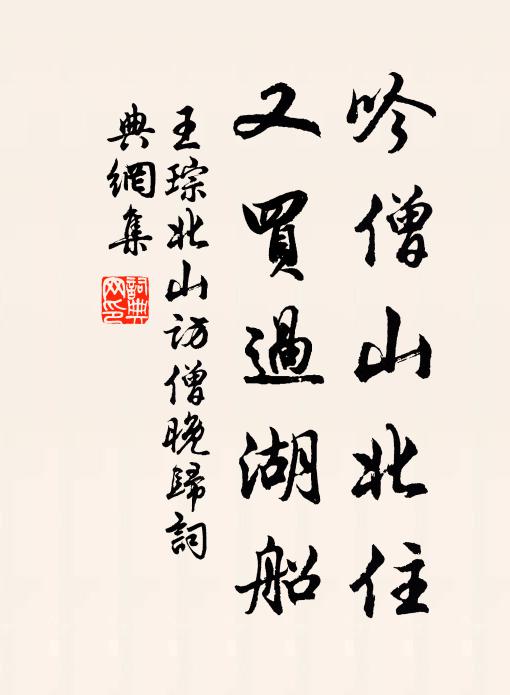 吟僧山北住
又買過湖船
王琮北山訪僧晚歸詞
典網集
詞典網印